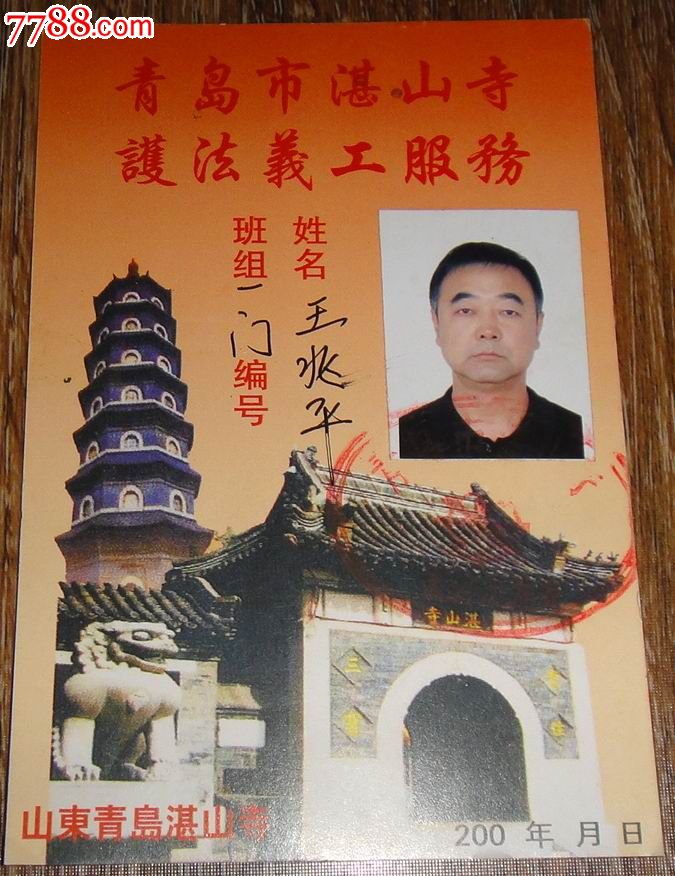 7788.com
青岛市湛山寺
護法義工服務
姓名 王兆平
班组 一门
编号
湛山寺
三寶
山東青島湛山寺
200 年 月 日